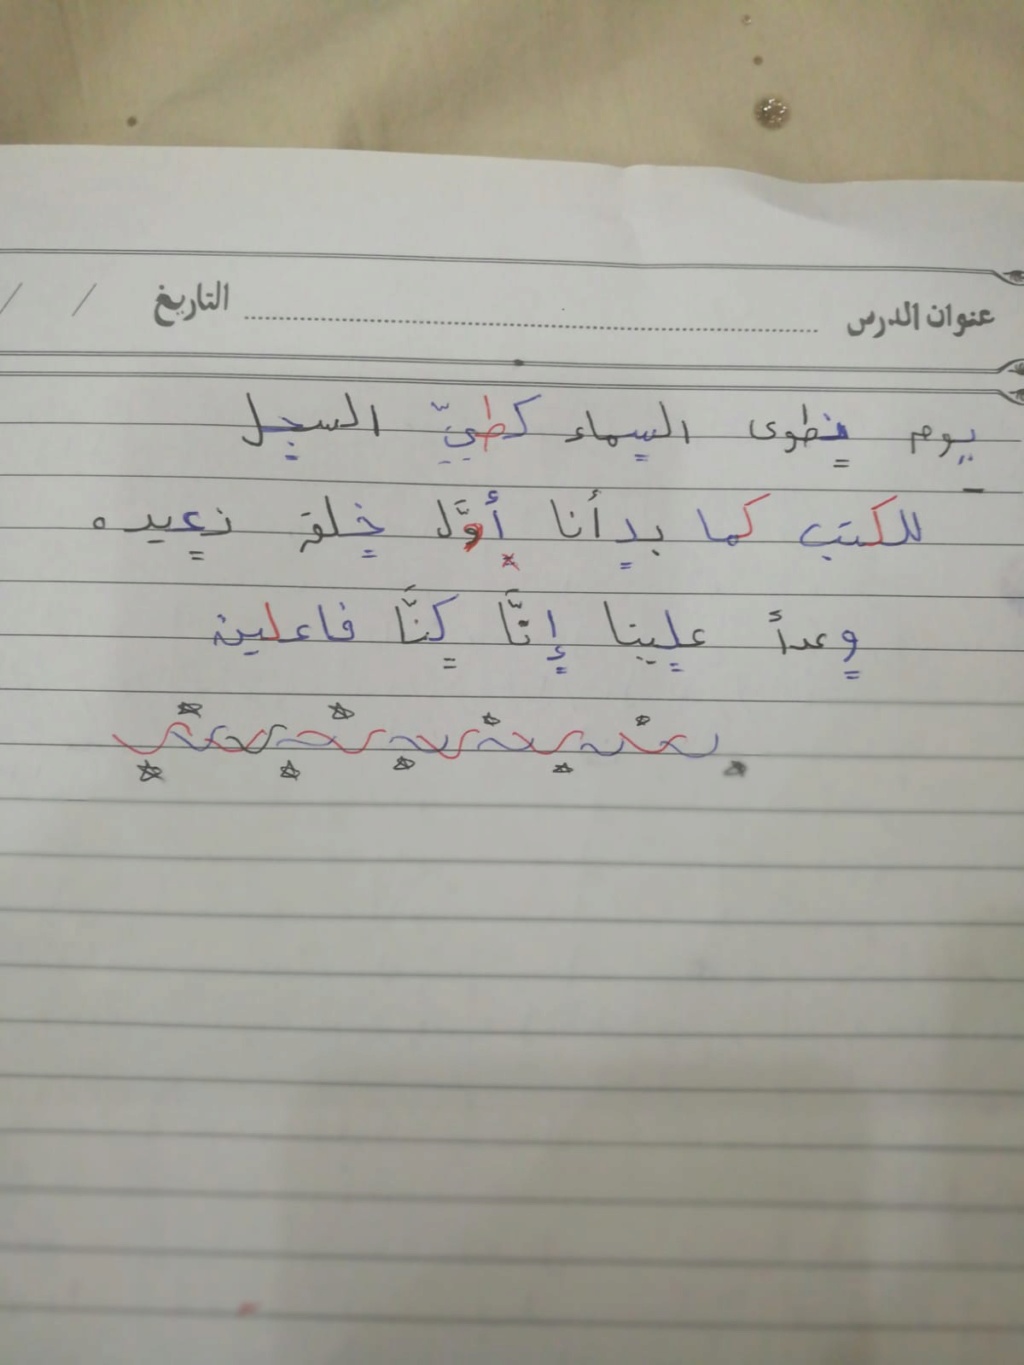 عنوان الدرس ........................ التاريخ / /
يوم نطوى السماء كطيِّ السجل
للكتب كما بدأنا أوَّل خلق نعيده
وعدأ علينا إنَّا كنَّا فاعلين